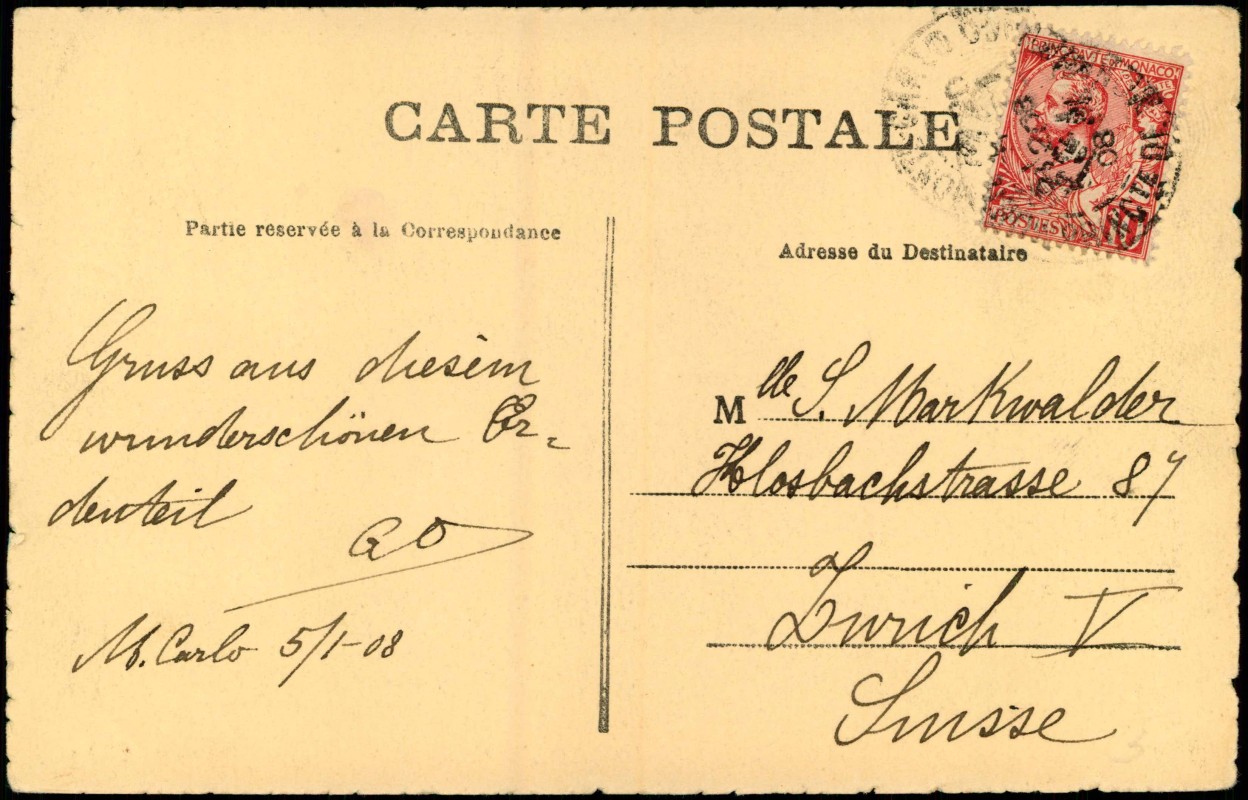 CARTE POSTALE
Partie reservée à la Correspondance
Adresse du Destinataire
PRINCIPAUTÉ DE MONACO
POSTES
10
Gruss aus diesem
wunderschönen Er=
denteil
M. Carlo 5/1-08
Mlle S. Markwalder
Klosbachstrasse 87
Zurich V
Suisse